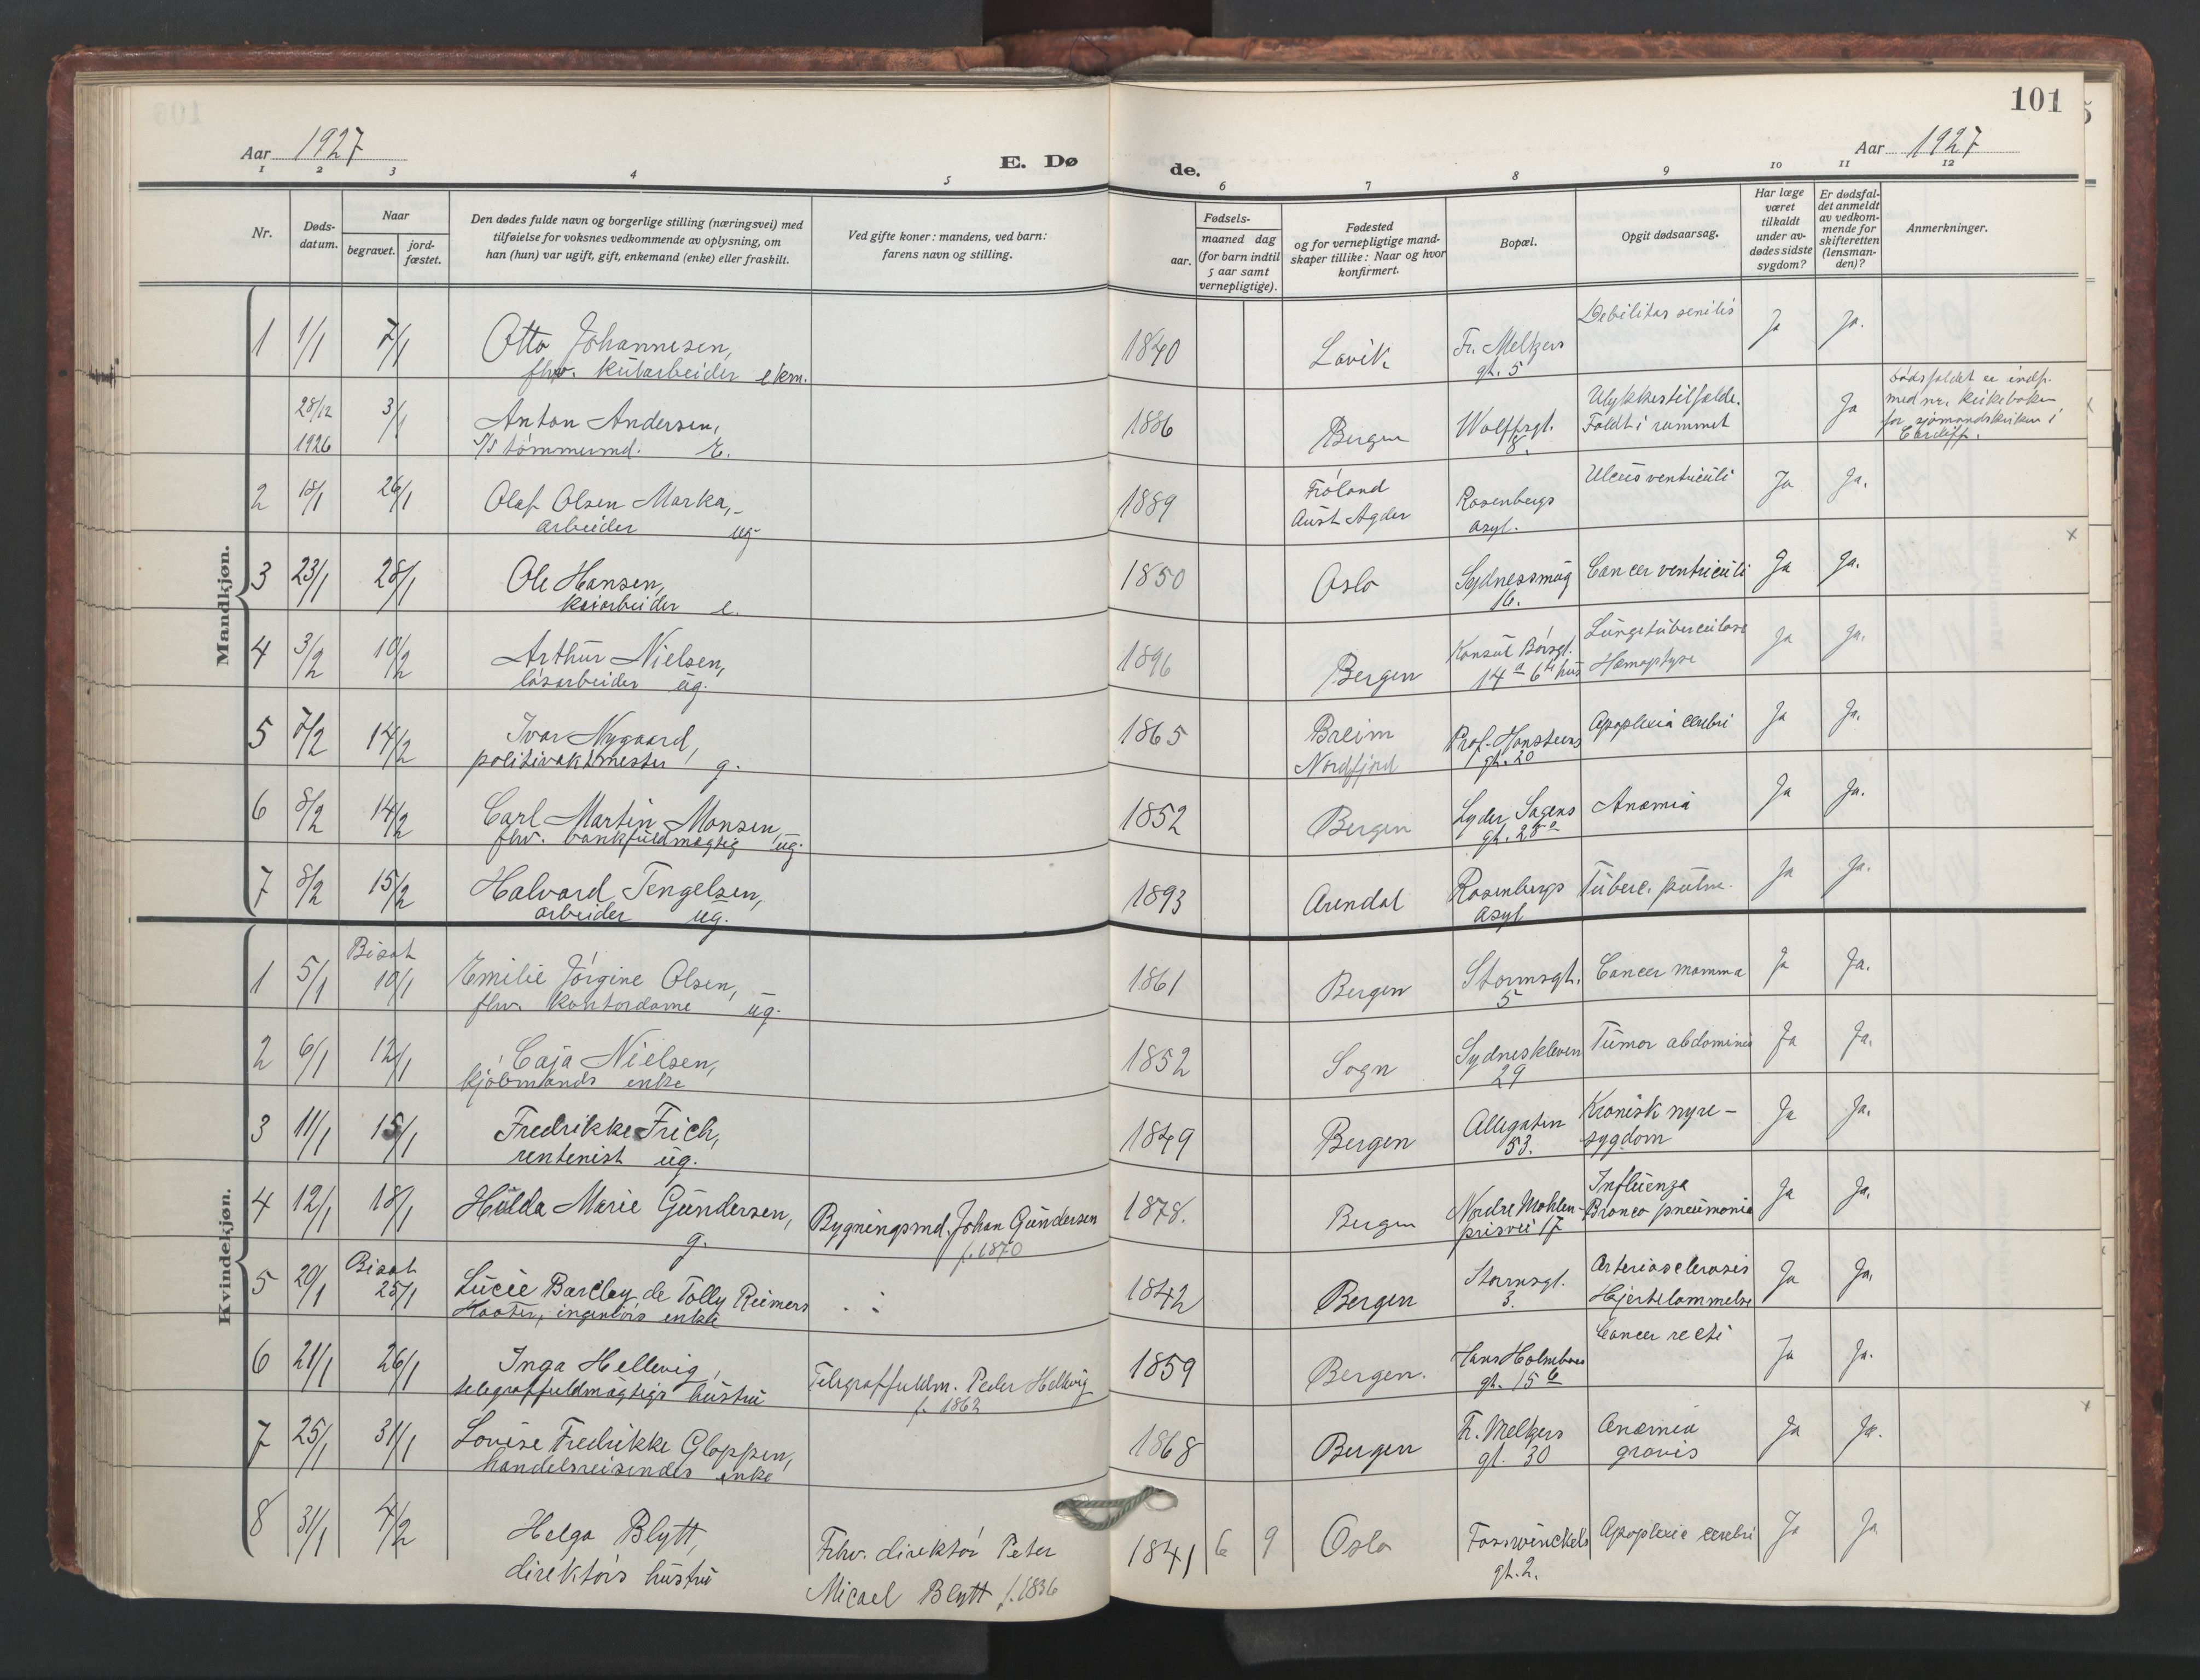 101
Aar 1927
E. Døde.
Aar 1927
1 2 3 4 5 6 7 8 9 10 11 12
Nr.
Døds-
datum.
Naar
begravet.
jord-
fæstet.
Den dødes fulde navn og borgerlige stilling (næringsvei) med
tilføielse for voksnes vedkommende av oplysning, om
han (hun) var ugift, gift, enkemand (enke) eller fraskilt.
Ved gifte koner: mandens, ved barn:
farens navn og stilling.
Fødsels-
aar.
maaned dag
(for barn indtil
5 aar samt
vernepligtige).
Fødested
og for vernepligtige mand-
skaper tillike: Naar og hvor
konfirmert.
Bopæl.
Opgit dødsaarsag.
Har læge
været
tilkaldt
under av-
dødes sidste
sygdom?
Er dødsfal-
det anmeldt
av vedkom-
mende for
skifteretten
(lensman-
den)?
Anmerkninger.
Mandkjøn.
1 1/1 7/1 Otto Johannesen, 1840 Lavik Fr. Meltzers Debilitas senilis Ja Ja.
fhv. kularbeider ekm. gt. 5
28/12 3/1 Anton Andersen, 1886 Bergen Wolffsgt. Ulykkestilfælde. Ja dødsfaldet er indf.
1926 S/S tømmermd. E. 8. Faldt i rummet med nr. i kirkeboken
for sjømandskirken i
Cardiff.
2 18/1 26/1 Olaf Olsen Marka, 1889 Fröland Rosenbergs Ulcus ventriculi Ja Ja.
arbeider ug. Aust Agder asyl.
3 23/1 28/1 Ole Hansen, 1850 Oslo Sydnessmug Cancer ventriculi Ja Ja.
kaiarbeider e. 16.
4 3/2 10/2 Arthur Nielsen, 1896 Bergen Konsul Børsgt. Lungetuberculose Ja Ja.
løsarbeider ug. 14a 6te hus Hæmoptyse
5 7/2 14/2 Ivar Nygaard, 1865 Breim Prof. Hansteens Apoplexia cerebri Ja Ja.
politivaktmester g. Nordfjord gt. 20
6 8/2 14/2 Carl Martin Monsen, 1852 Bergen Lyder Sagens Anæmia Ja Ja.
fhv. bankfuldmægtig ug. gt. 28a
7 8/2 15/2 Halvard Tengelsen, 1893 Arendal Rosenbergs Tuberc. pulm. Ja Ja.
arbeider ug. asyl
Kvindekjøn.
Bisat
1 5/1 10/1 Emilie Jørgine Olsen, 1861 Bergen Stormsgt. Cancer mamma Ja Ja.
fhv. kontordame ug. 5
2 6/1 12/1 Caja Nielsen, 1852 Sogn Sydneskleven Tumor abdominis Ja Ja.
kjøbmands enke 29
3 11/1 15/1 Fredrikke Frich, 1849 Bergen Allegaten Kronisk nyre- Ja Ja.
rentenist ug. 53. sygdom
4 12/1 18/1 Hulda Marie Gundersen, Bygningsmd. Johan Gundersen 1878. Bergen Nordre Møhlen- Influenza Ja Ja.
g. f. 1870 prisvei 17 Bronco pneumonia
Bisat
5 20/1 25/1 Lucie Barclay de Tolly Reimers 1842 Bergen Stormsgt. Arteriosclerosis Ja Ja.
ingeniørs enke 3. Hjertelammelse
6 21/1 26/1 Inga Hellevig, Telegraffuldm. Peder Hellevig 1859 Bergen. Hans Holmboes Cancer recti Ja Ja.
telegraffuldmægtigs hustru f. 1862 gt. 15b
7 25/1 31/1 Lovise Fredrikke Gloppen, 1868 Bergen Fr. Meltzers Anæmia Ja Ja.
handelsreisendes enke gt. 30 gravis
8 31/1 4/2 Helga Blytt, Fhv. direktør Peter 1841 6 9 Oslo Fosswinckels Apoplexia cerebri Ja Ja
direktørs hustru Micael Blytt f. 1836 gt. 2.